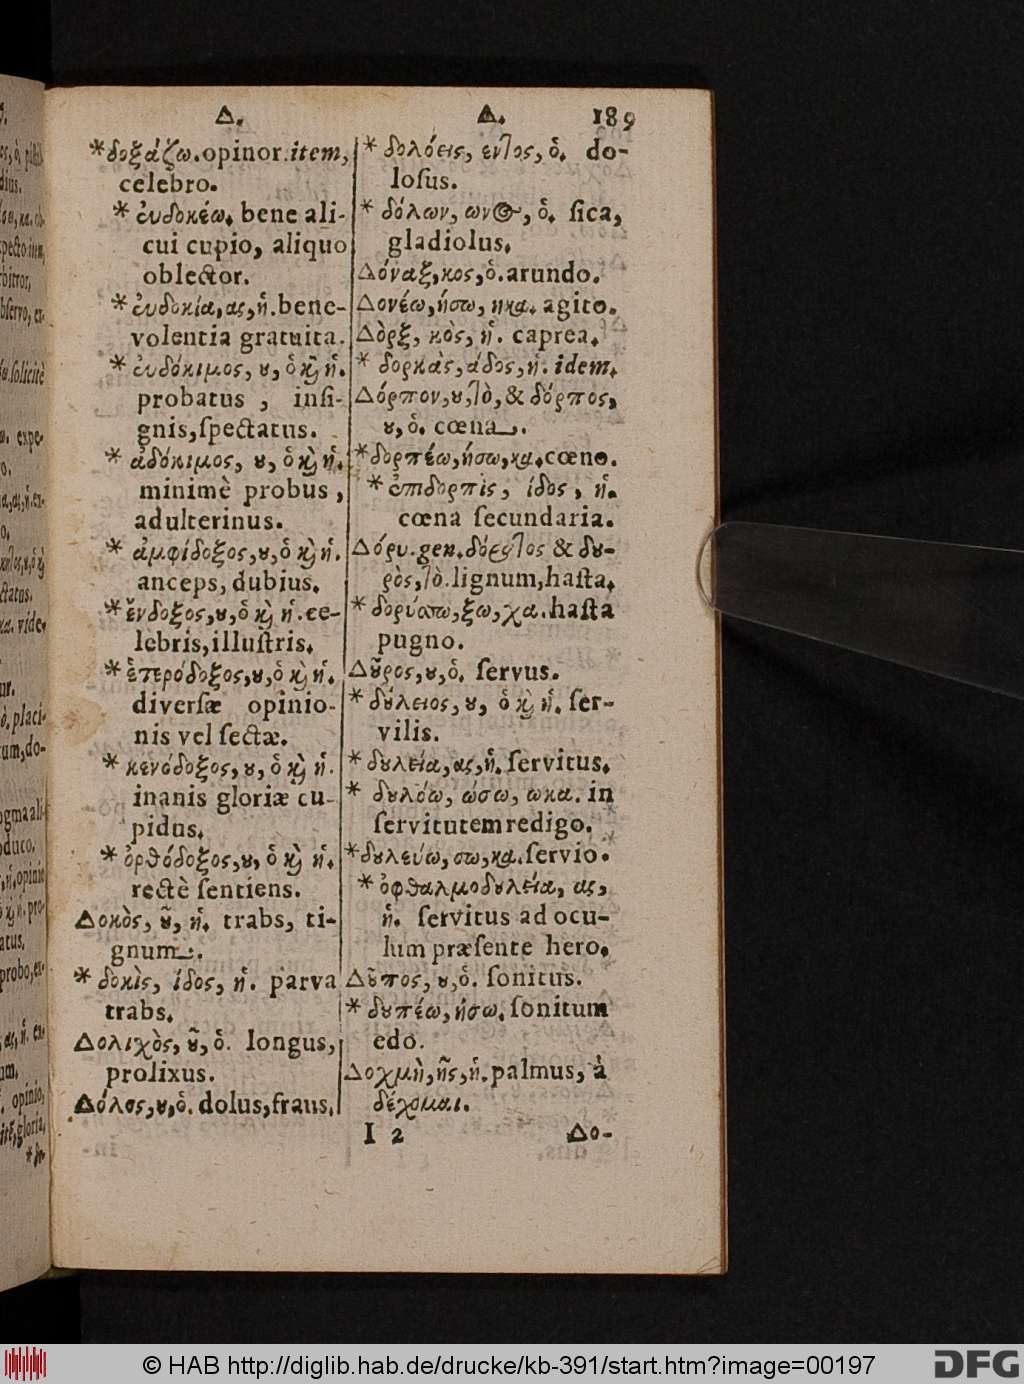 Δ.
*δοξάζω. opinor. item,
celebro.
* ἐυδοκέω. bene ali-
cui cupio, aliquo
oblector.
* ἐυδοκία, ας, ἡ. bene-
volentia gratuita.
* ἐυδόκιμος, ȣ, ὁ ϗ̀ ἡ.
probatus , insi-
gnis, spectatus.
* ἀδόκιμος, ȣ, ὁ ϗ̀ ἡ.
minimè probus,
adulterinus.
* ἀμφίδοξος, ȣ, ὁ ϗ̀ ἡ.
anceps, dubius.
* ἔνδοξος, ȣ, ὁ ϗ̀ ἡ. ce-
lebris, illustris.
* ἑτερόδοξος, ȣ, ὁ ϗ̀ ἡ.
diversæ opinio-
nis vel sectæ.
* κενόδοξος, ȣ, ὁ ϗ̀ ἡ.
inanis gloriæ cu-
pidus.
* ὀρθόδοξος, ȣ, ὁ ϗ̀ ἡ.
rectè sentiens.
Δοκὸς, ȣ͂, ἡ. trabs, ti-
gnum.
* δοκὶς, ίδος, ἡ. parva
trabs.
Δολιχὸς, ȣ͂, ὁ. longus,
prolixus.
Δόλος, ȣ, ὁ. dolus, fraus.
Δ. 189
* δολόεις, εντος, ὁ. do-
losus.
* δόλων, ωνος, ὁ. sica,
gladiolus.
Δόναξ, κος, ὁ. arundo.
Δονέω, ήσω, ηκα. agito.
Δὸρξ, κὸς, ἡ. caprea.
* δορκὰς, άδος, ἡ. idem.
Δόρπον, ȣ, τὸ, & δόρπος,
ȣ, ὁ. cœna.
*δορπέω, ήσω, κα. cœno.
* ἐπιδορπὶς, ίδος, ἡ.
cœna secundaria.
Δόρυ. gen. δόρατος & δȣ-
ρὸς, τὸ. lignum, hasta.
* δορύσσω, ξω, χα. hasta
pugno.
Δȣ͂ρος, ȣ, ὁ. servus.
* δȣ́λειος, ȣ, ὁ ϗ̀ ἡ. ser-
vilis.
* δȣλεία, ας, ἡ. servitus.
* δȣλόω, ώσω, ωκα. in
servitutem redigo.
*δȣλεύω, σω, κα. servio.
* ὀφθαλμοδȣλεία, ας,
ἡ. servitus ad ocu-
lum præsente hero.
Δȣ͂πος, ȣ, ὁ. sonitus.
* δȣπέω, ήσω. sonitum
edo.
Δοχμὴ, ῆς, ἡ. palmus, à
δέχομαι.
I 2 Δο-
© HAB http://diglib.hab.de/drucke/kb-391/start.htm?image=00197 DFG